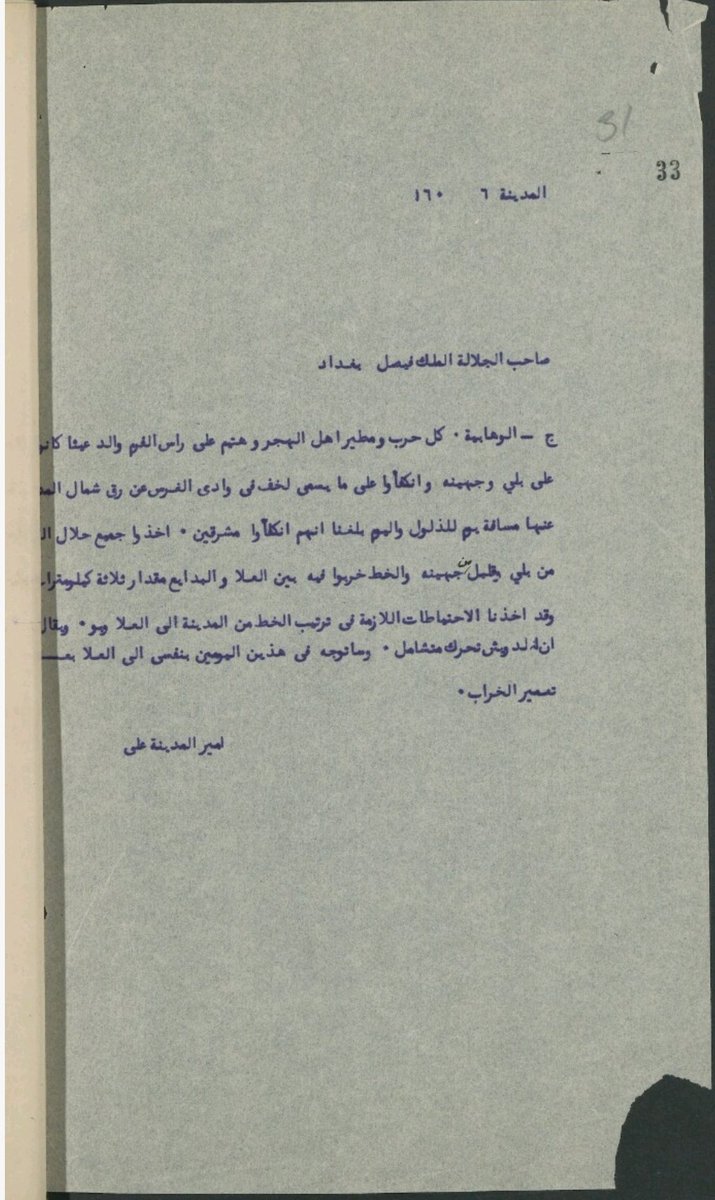 31
33
المدينة ٦ ١٦٠
صاحب الجلالة الملك فيصل بغداد
ج ــ الوهابية ٠ كل حرب ومطير اهل الهجر وهتيم على راس الفرم
على بلي وجهينه وانكفأوا على ما يسمى لخف فى وادى الفرس عن رق شمال
عنها مسافة يوم للذلول واليوم بلغنا انهم انكفأوا مشرقين ٠ اخذوا جميع حلال
من بلي وقليل من جهينه والخط خربوا فيه بين العلا والبدايع مقدار ثلاثة
وقد اخذنا الاحتياطات اللازمة فى ترتيب الخط من المدينة الى العلا
تحرك متشامل ٠ وساتوجه فى هذين اليومين بنفسى الى العلا
تعمير الخراب ٠
امير المدينة على